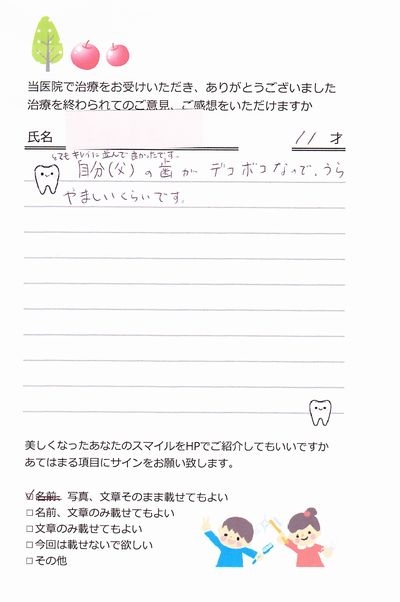 当医院で治療をお受けいただき、ありがとうございました
治療を終わられてのご意見、ご感想をいただけますか
氏名
11 才
とてもキレイに並んで良かったです。
自分(父)の歯がデコボコなので、うら
やましいくらいです。
美しくなったあなたのスマイルをHPでご紹介してもいいですか
あてはまる項目にサインをお願い致します。
☑名前、写真、文章そのまま載せてもよい
□名前、文章のみ載せてもよい
□文章のみ載せてもよい
□今回は載せないで欲しい
□その他